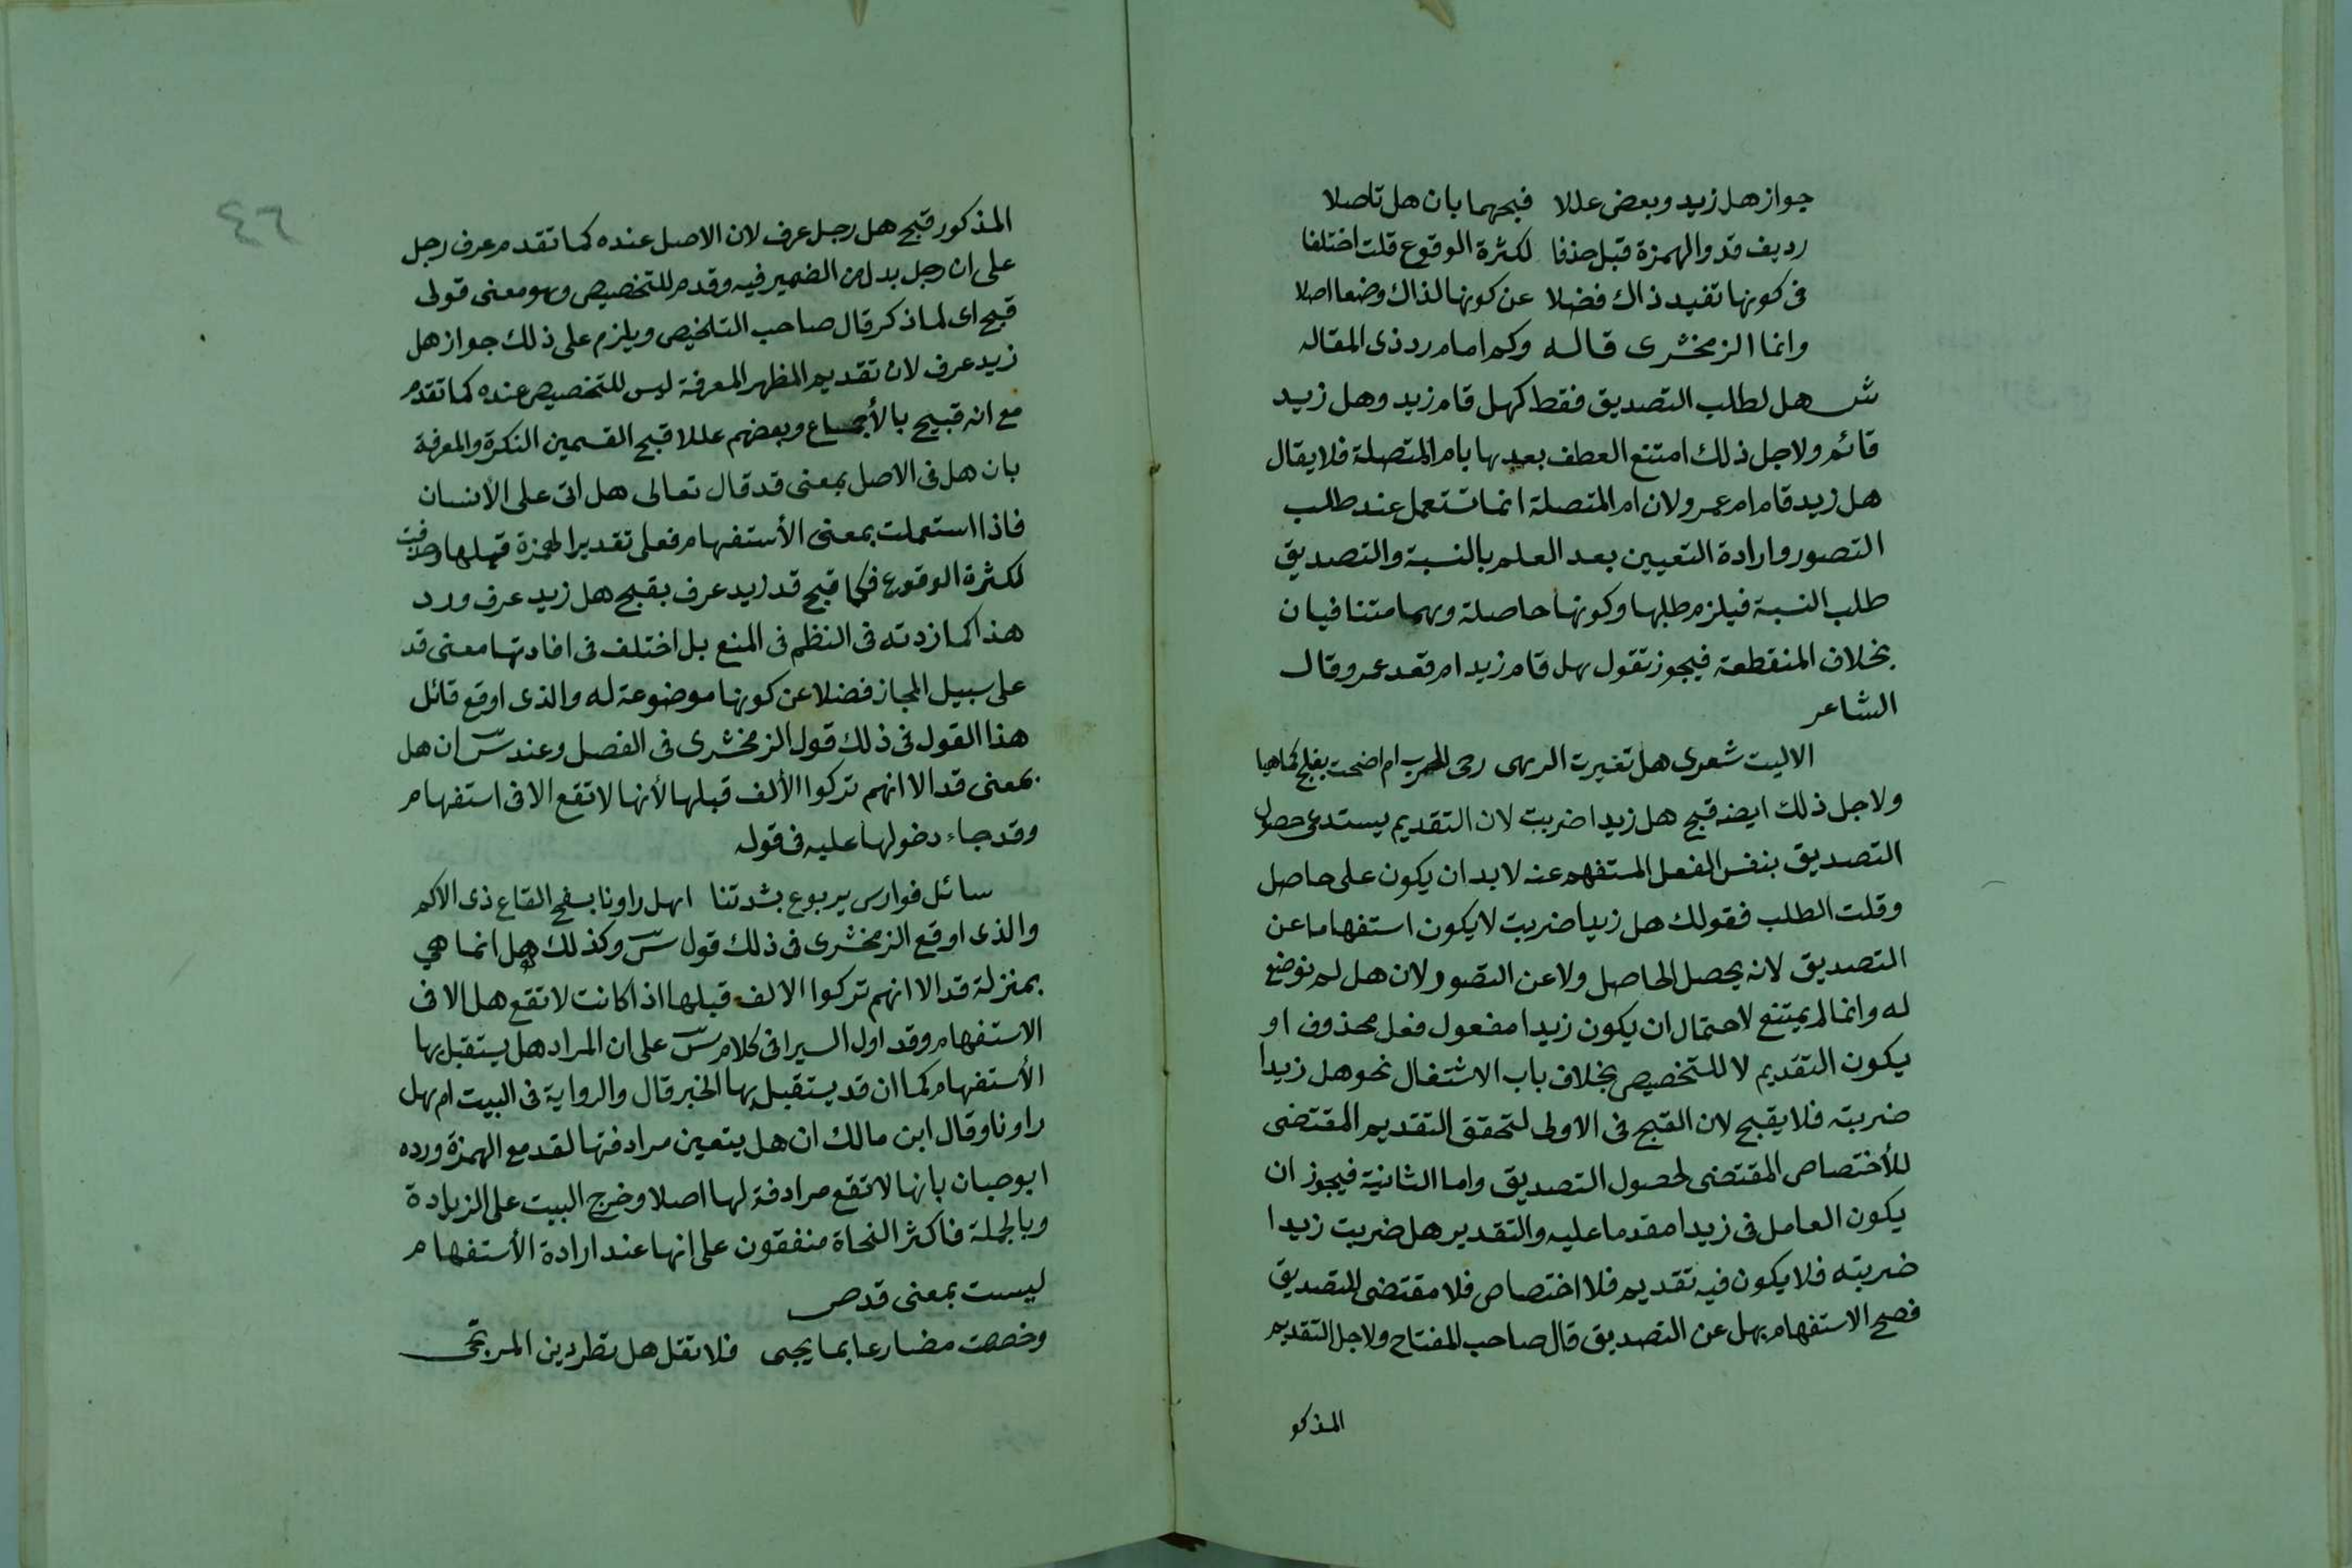 جواز هل زيد وبعض عللا فبحهما بان هل تاصلا
رديف قد والهمزة قبل حذفا لكثرة الوقوع قلت اختلفا
فى كونها تفيد ذاك فضلا عن كونها لذاك وضعا اصلا
وانما الزمخشرى قاله وكم امام رد ذى المقاله
ش هل لطلب التصديق فقط كهل قام زيد وهل زيد
قائم ولاجل ذلك امتنع العطف بعدها بام المتصلة فلا يقال
هل زيد قام ام عمر ولان ام المتصلة انما تستعمل عند طلب
التصور وارادة التعيين بعد العلم بالنسبة والتصديق
طلب النسبة فيلزم طلبها وكونها حاصلة وهما متنافيان
بخلاف المنقطعة فيجوز تقول هل قام زيد ام قعد عمر وقال
الشاعر
الاليت شعرى هل تغيرت الرهى رحى الحرب ام اضحت بفلج كماهيا
ولاجل ذلك ايضه قبح هل زيدا ضربت لان التقديم يستدعى حصول
التصديق بنفس الفعل المستفهم عنه لابد ان يكون على حاصل
وقلت الطلب فقولك هل زيدا ضربت لا يكون استفهاما عن
التصديق لانه يحصل الحاصل ولا عن التصور لان هل لم توضع
له وانما لم يمتنع لاحتمال ان يكون زيدا مفعول فعل محذوف او
يكون التقديم لا للتخصيص بخلاف باب الاشتغال نحو هل زيدا
ضربته فلا يقبح لان القبح فى الاولى لتحقق التقديم المقتضى
للأختصاص المقتضى لحصول التصديق واما الثانية فيجوز ان
يكون العامل فى زيدا مقدما عليه والتقدير هل ضربت زيدا
ضربته فلا يكون فيه تقديم فلا اختصاص فلا مقتضى للتصديق
فصح الاستفهام بهل عن التصديق قال صاحب المفتاح ولاجل التقديم
المذكو
٤٦
المذكور قبح هل رجل عرف لان الاصل عنده كما تقدم عرف رجل
على ان رجل بدل من الضمير فيه وقدم للتخصيص وهو معنى قولى
قبح اى لما ذكر قال صاحب التلخيص ويلزم على ذلك جواز هل
زيد عرف لان تقديم المظهر المعرفة ليس للتخصيص عنده كما تقدم
مع انه قبيح بالأجماع وبعضهم عللا قبح القسمين النكرة والمعرفة
بان هل فى الاصل بمعنى قد قال تعالى هل اتى على الأنسان
فاذا استعملت بمعنى الأستفهام فعلى تقدير الهمزة قبلها وحذفت
لكثرة الوقوع فكما قبح قد زيد عرف بقبح هل زيد عرف ورد
هذا كما زدته فى النظم فى المنع بل اختلف فى افادتها معنى قد
على سبيل المجاز فضلا عن كونها موضوعة له والذى اوقع قائل
هذا القول فى ذلك قول الزمخشرى فى الفصل وعند س ان هل
بمعنى قد الا انهم تركوا الألف قبلها لأنها لا تقع الا فى استفهام
وقد جاء دخولها عليه فى قوله
سائل فوارس يربوع بشدتنا اهل راونا بسفح القاع ذى الاكم
والذى اوقع الزمخشرى فى ذلك قول س وكذلك هل انما هي
بمنزلة قد الا انهم تركوا الالف قبلها اذا كانت لا تقع هل الا فى
الاستفهام وقد اول السيرافى كلام س على ان المراد هل يستقبل بها
الأستفهام كما ان قد يستقبل بها الخبر قال والرواية فى البيت ام هل
راونا وقال ابن مالك ان هل يتعين مرادفتها لقد مع الهمزة ورده
ابو حيان بانها لا تقع مرادفة لها اصلا وخرج البيت على الزيادة
وبالجملة فاكثر النحاة متفقون على انها عند ارادة الأستفهام
ليست بمعنى قد ص
وخصصت مضارعا بما يجى فلا تقل هل تطردين المرتجى